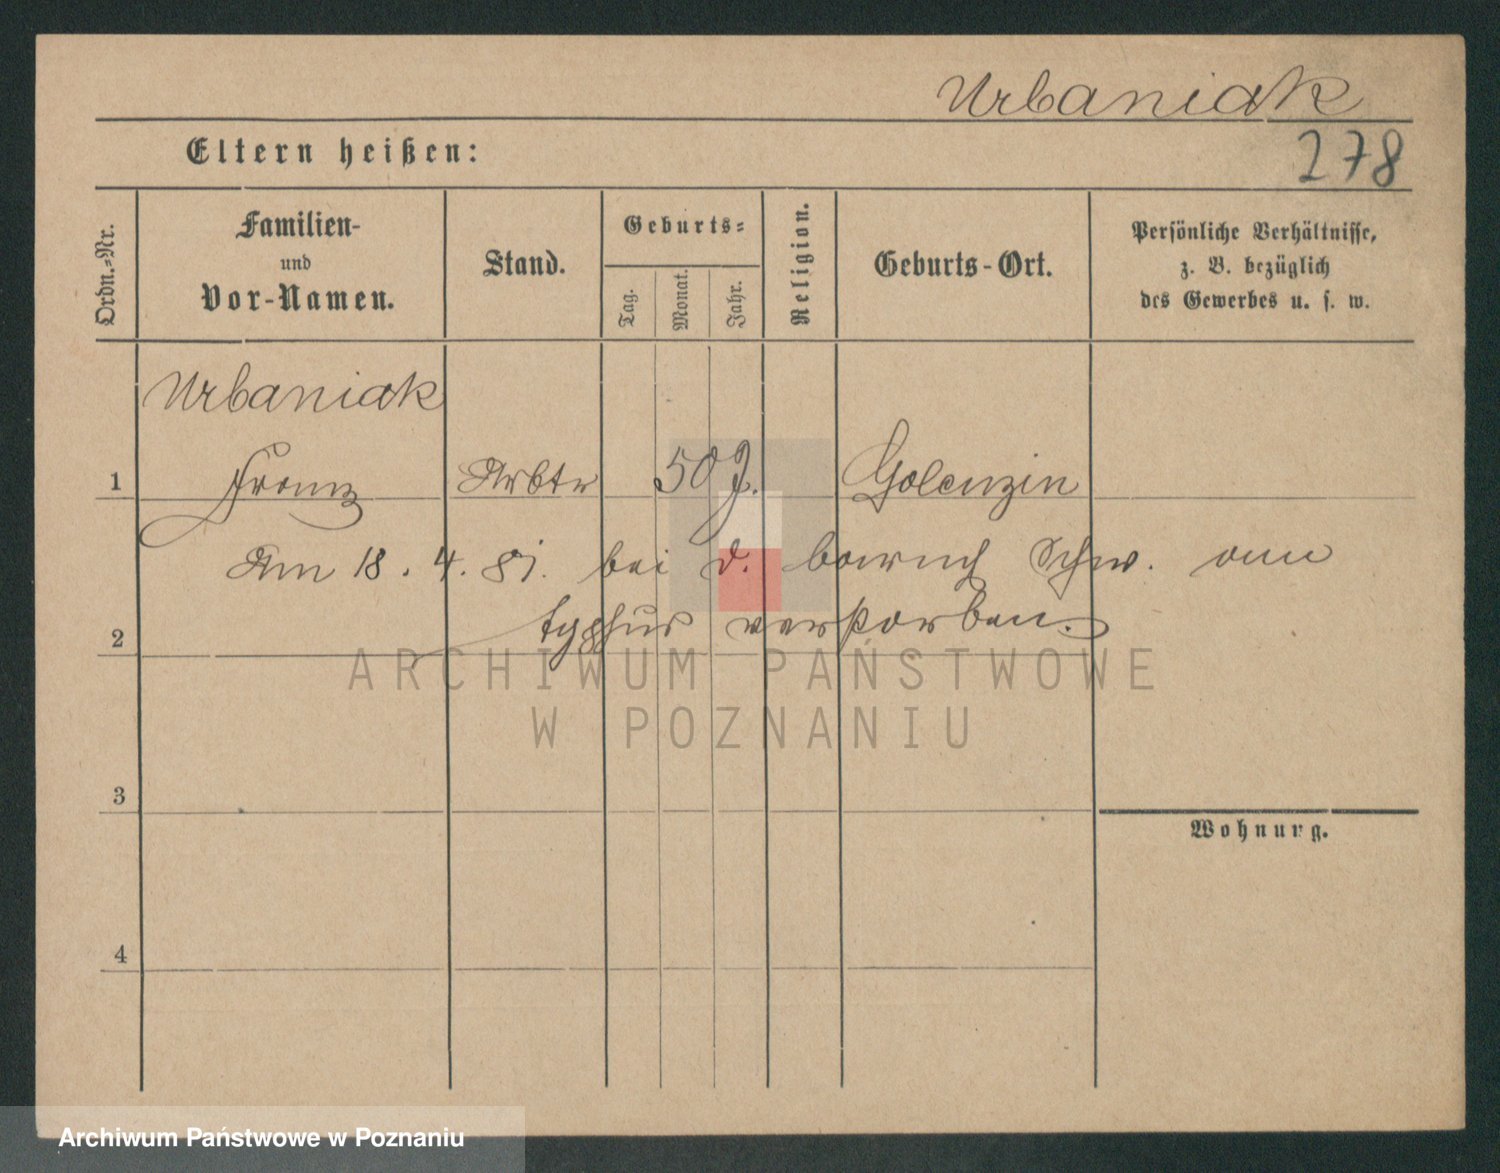 Urbaniak
278
Eltern heißen:
Ordn.-Nr.
Familien-
und
Vor-Namen.
Stand.
Geburts-
Tag.
Monat.
Jahr.
Religion.
Geburts-Ort.
Persönliche Verhältnisse,
z. B. bezüglich
des Gewerbes u. s. w.
Urbaniak
1 Franz Arbtr 50 J. Golenzin
Am 18. 4. 81. bei d. barmh Schw. am
2 typhus verstorben.
ARCHIWUM PAŃSTWOWE
W POZNANIU
3
Wohnung.
4
Archiwum Państwowe w Poznaniu